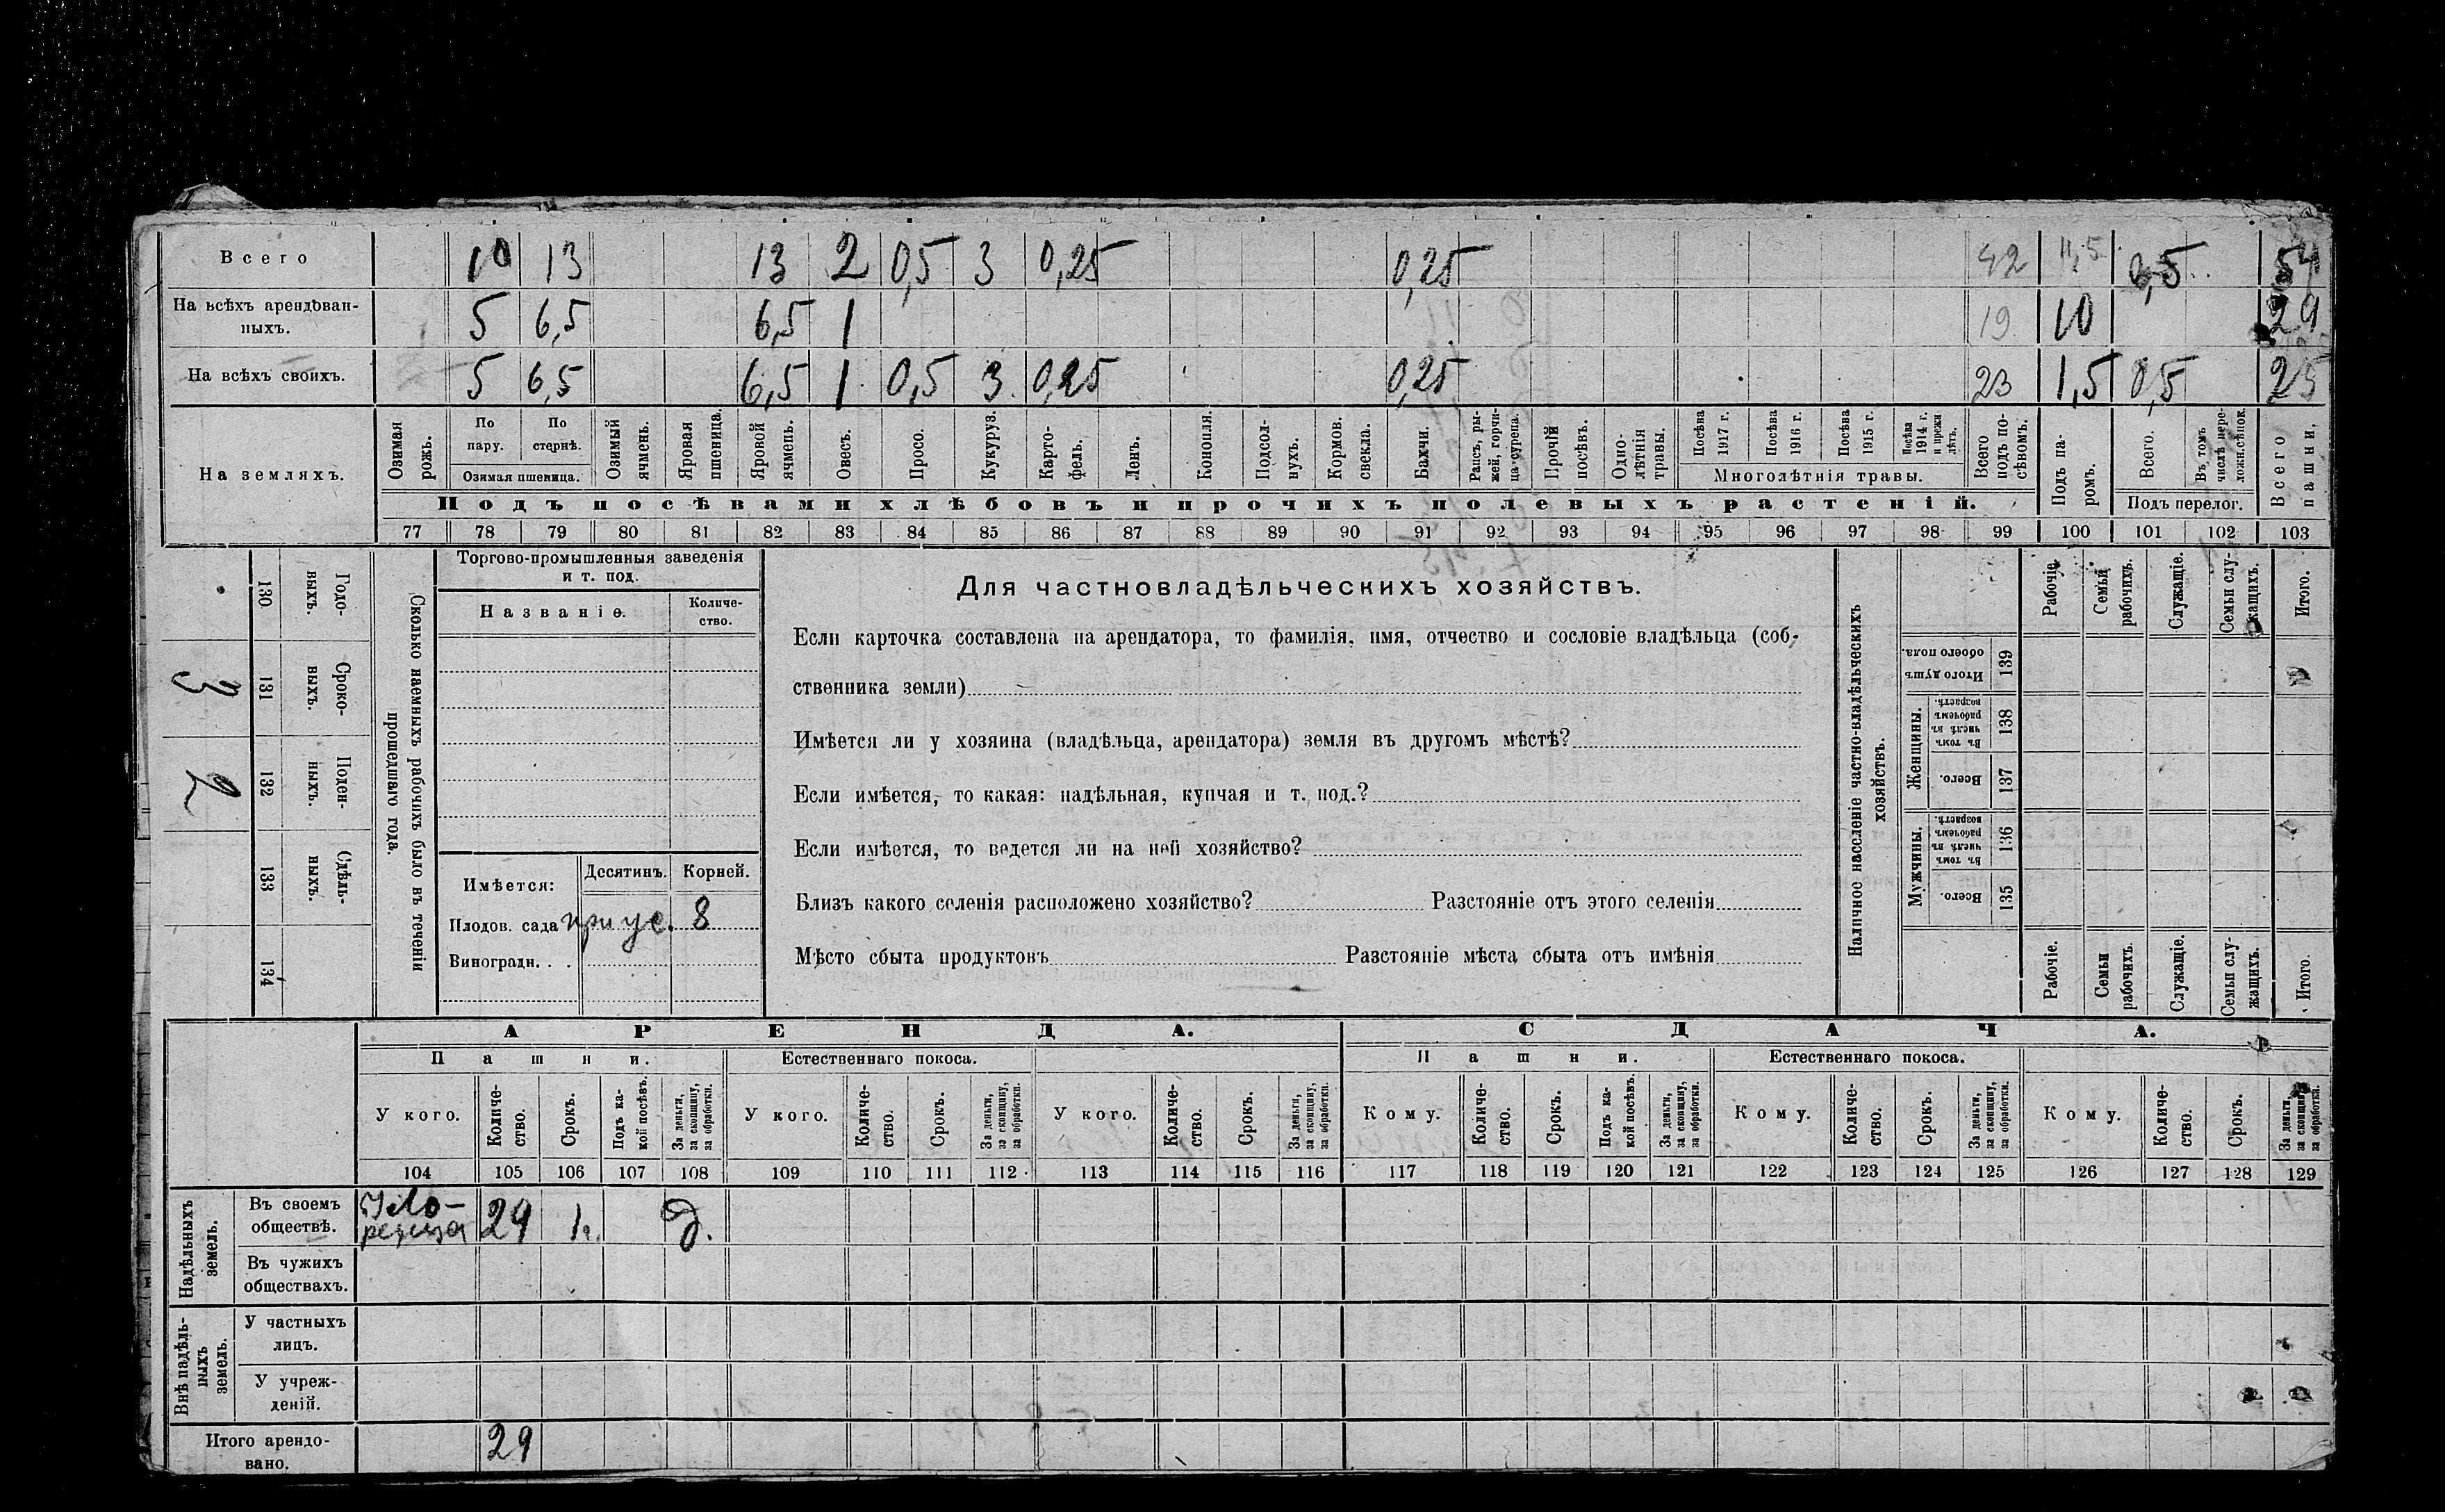 Всего 10 13 13 2 0,5 3 0,25 0,25 42 11,5 0,5 54
На всѣхъ арендован-
ныхъ. 5 6,5 6,5 1 19 10 29
На всѣхъ своихъ. 5 6,5 6,5 1 0,5 3 0,25 0,25 23 1,5 0,5 25
На земляхъ.
Озимая рожь.
По пару.
По стернѣ.
Озимая пшеница.
Озимый ячмень.
Яровая пшеница.
Яровой ячмень.
Овесъ.
Просо.
Кукуруз.
Карто-
фель.
Ленъ.
Конопля.
Подсол-
нухъ.
Кормов. свекла.
Бахчи.
Рапсъ, ры-
жей, горчи-
ца сурепа.
Прочій посѣвъ.
Одно-
лѣтнія травы.
Посѣва 1917 г.
Посѣва 1916 г.
Посѣва 1915 г.
Посѣва 1914 г. и прежн лѣтъ.
Многолѣтнія травы.
Всего подъ по-
сѣвомъ.
Подъ посѣвами хлѣбовъ и прочихъ полевыхъ растеній.
Подъ па-
ромъ.
Всего.
Въ томъ числѣ пере-
ложн.сѣнок.
Подъ перелог.
Всего пашни.
77 78 79 80 81 82 83 84 85 86 87 88 89 90 91 92 93 94 95 96 97 98 99 100 101 102 103
130 Годо-
выхъ.
3 131 Сроко-
выхъ.
2 132 Поден-
ныхъ.
133 Сдѣль-
ныхъ.
134
Сколько наемныхъ рабочихъ было въ теченіи
прошедшаго года.
Торгово-промышленныя заведенія
и т. под.
Названіе.
Количе-
ство.
Имѣется: Десятинъ. Корней.
Плодов. сада при ус. 8
Виноградн. . .
Для частновладѣльческихъ хозяйствъ.
Если карточка составлена на арендатора, то фамилія, имя, отчество и сословіе владѣльца (соб-
ственника земли)
Имѣется ли у хозяина (владѣльца, арендатора) земля въ другомъ мѣстѣ?
Если имѣется, то какая: надѣльная, купчая и т. под.?
Если имѣется, то ведется ли на ней хозяйство?
Близъ какого селенія расположено хозяйство? Разстояніе отъ этого селенія
Мѣсто сбыта продуктовъ Разстояніе мѣста сбыта отъ имѣнія
Наличное населеніе частно-владѣльческихъ
хозяйствъ.
Рабочіе.
Семьи рабочихъ.
Служащіе.
Семьи слу-
жащихъ.
Итого.
Итого душъ обоего пола. 139
Женщины.
Въ томъ числѣ въ рабочемъ возрастѣ. 138
Всего. 137
Мужчины.
Въ томъ числѣ въ рабочемъ возрастѣ. 136
Всего. 135
Рабочіе.
Семьи рабочихъ.
Служащіе.
Семьи слу-
жащихъ.
Итого.
АРЕНДА. СДАЧА.
Пашни. Естественнаго покоса. Пашни. Естественнаго покоса.
У кого.
Количе-
ство.
Срокъ.
Подъ ка-
кой посѣвъ.
За деньги, за скопщину, за обработки.
У кого.
Количе-
ство.
Срокъ.
За деньги, за скопщину, за обработкп.
У кого.
Количе-
ство.
Срокъ.
За деньги, за скопщину, за обработки.
Кому.
Количе-
ство.
Срокъ.
Подъ ка-
кой посѣвъ.
За деньги, за скопщину, за обработки.
Кому.
Количе-
ство.
Срокъ.
За деньги, за скопщину, за обработки.
Кому.
Количе-
ство.
Срокъ.
За деньги за скопщину за обработки.
104 105 106 107 108 109 110 111 112 113 114 115 116 117 118 119 120 121 122 123 124 125 126 127 128 129
Надѣльныхъ земель.
Въ своемъ
обществѣ. 29 1 д.
Въ чужихъ
обществахъ.
Внѣ надѣль-
ныхъ земель.
У частныхъ
лицъ.
У учреж-
деній.
Итого арендо-
вано. 29